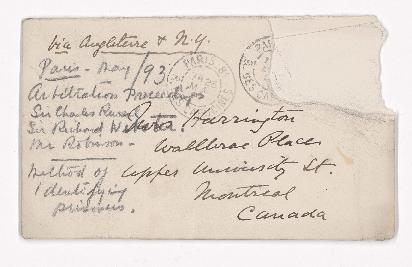 via Angleterre & N.Y.
Paris - May /93
Arbitration Proceedings
Sir Charles Russell
Sir Richard Webster.
Mr Robinson -
Method of
Identifying
prisoners.
PARIS
Mrs Harrington
Wallbrae Place
Upper University St.
Montreal
Canada